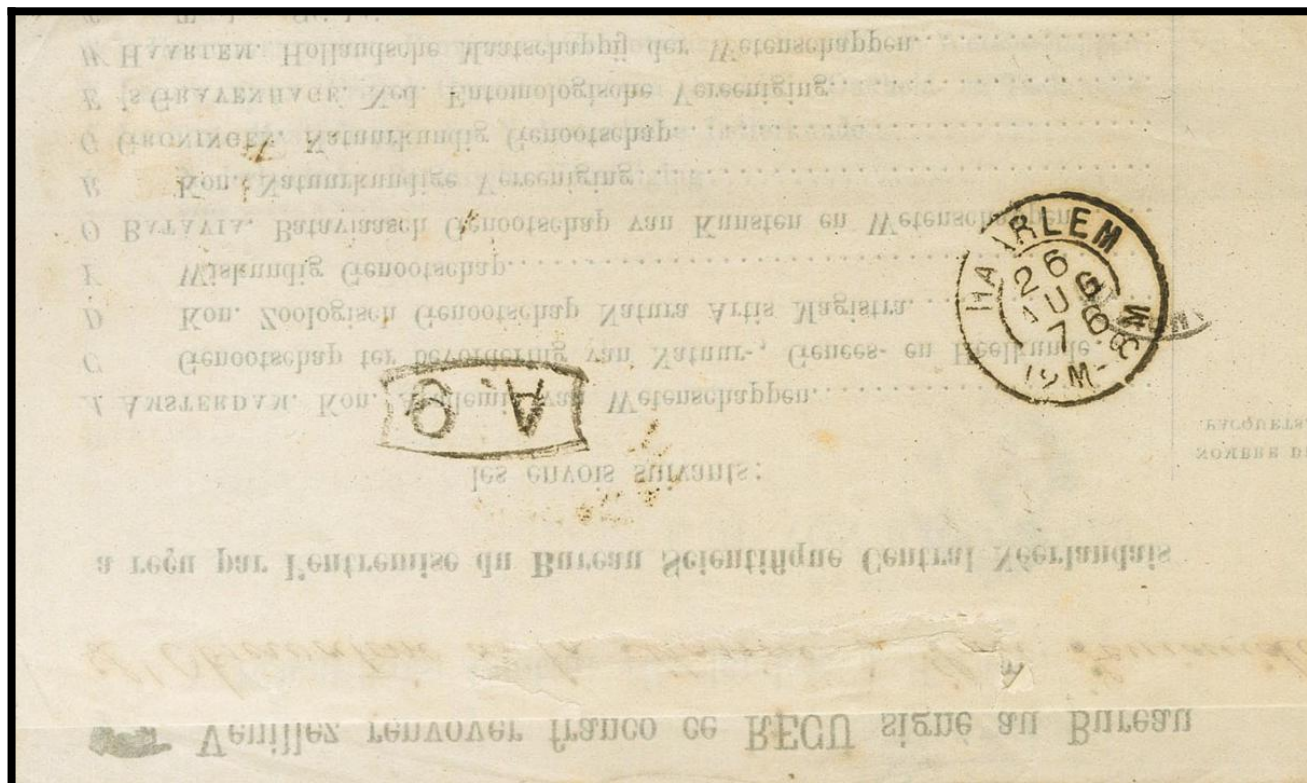 Veuillez renvoyer franco ce REÇU signé au Bureau
a reçu par l'entremise du Bureau Scientifique Central Néerlandais
les envois suivants:
NOMBRE DE
PACQUETS.
A AMSTERDAM. Kon. Akademie van Wetenschappen
C Genootschap ter bevordering van Natuur-, Genees- en Heelkunde
D Kon. Zoologisch Genootschap Natura Artis Magistra
Wiskundig Genootschap
O BATAVIA. Bataviaasch Genootschap van Kunsten en Wetenschappen
R Kon. Natuurkundige Vereeniging
G GRONINGEN. Natuurkundig Genootschap
E 's GRAVENHAGE. Ned. Entomologische Vereeniging
H HAARLEM. Hollandsche Maatschappij der Wetenschappen
HAARLEM
26
AUG
76
12M-8M